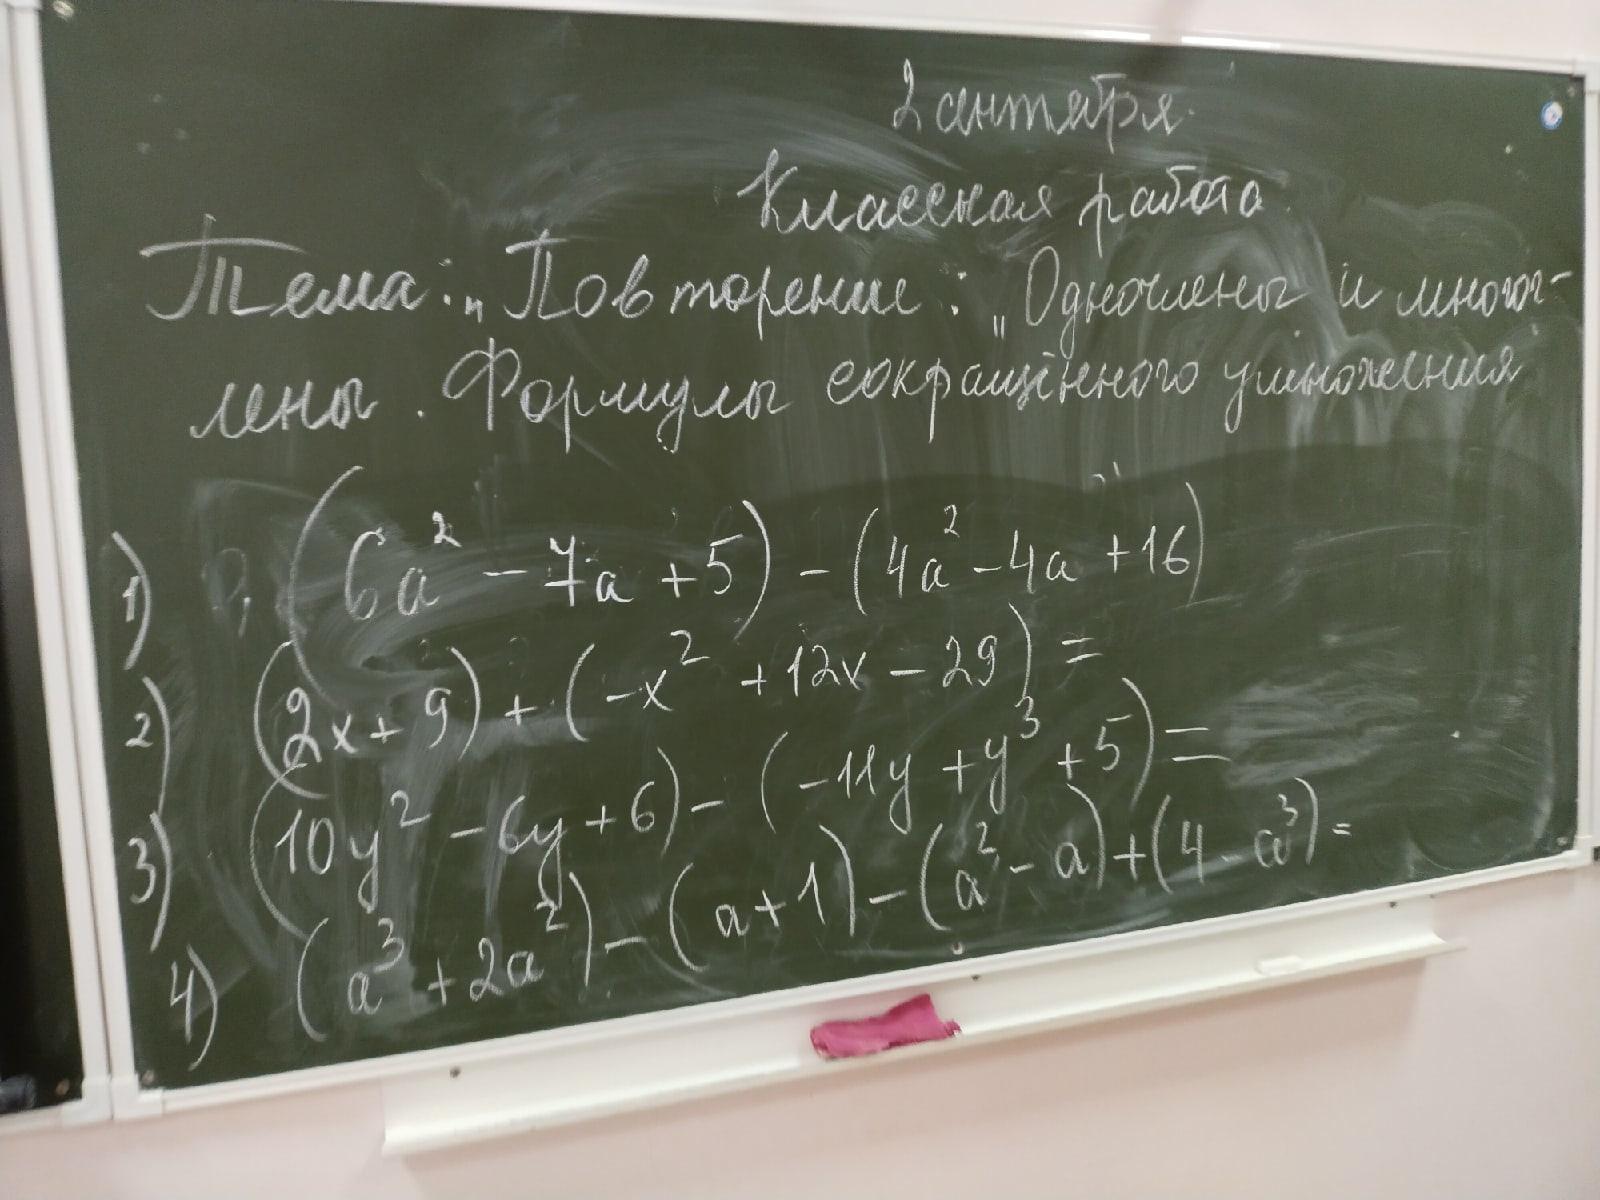 2 сентября.
Классная работа
Тема: „Повторение: „Одночлены и многоч-
лены. Формулы сокращённого умножения
1) (6a² - 7a + 5) - (4a² - 4a + 16)
2) (2x + 9) + (-x² + 12x - 29) =
3) (10y² - 6y + 6) - (-11y + y³ + 5) =
4) (a³ + 2a²) - (a + 1) - (a² - a) + (4 - a³) =